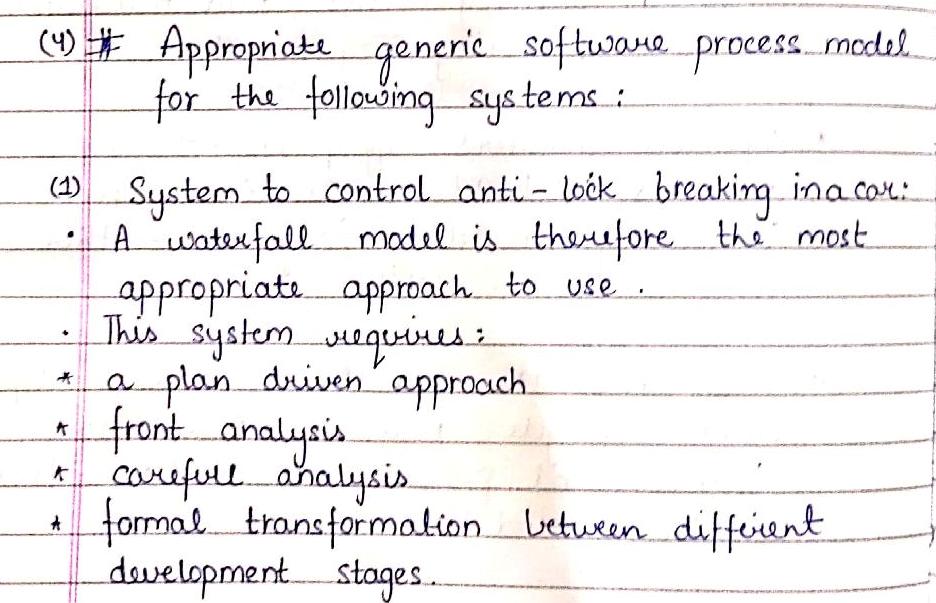 (4) # Appropriate generic software process model
for the following systems :
(1) System to control anti-lock breaking in a car:
• A waterfall model is therefore the most
appropriate approach to use .
• This system requires :
* a plan driven approach
* front analysis
* carefull analysis
* formal transformation between different
development stages.